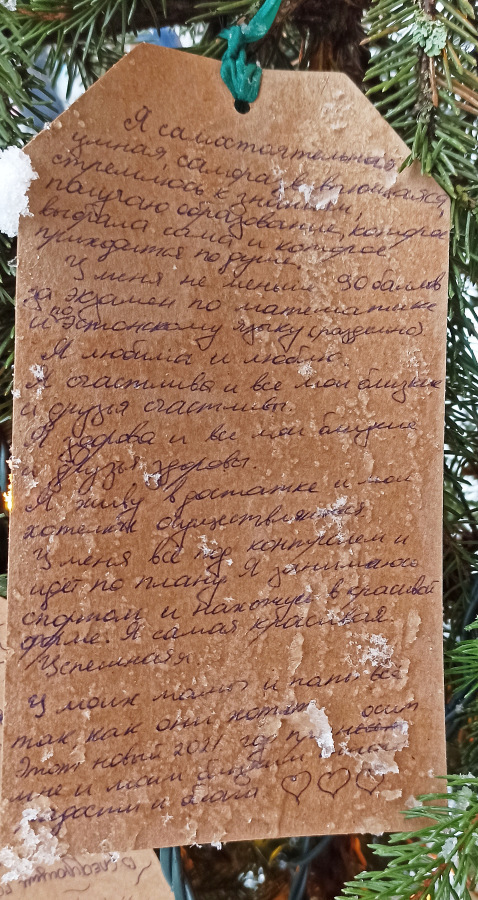 Я самостоятельная,
умная саморазвивающаяся,
стремлюсь к знаниям,
получаю образование, которое
выбрала сама и которое
приходится по душе.
У меня не меньше 90 баллов
за экзамен по математике
и по эстонскому языку (раздельно)
Я любима и люблю.
Я счастлива и все мои близкие
и друзья счастливы.
Я здорова и все мои близкие
и друзья здоровы.
Я живу в достатке и мои
хотелки осуществляются
У меня всё под контролем и
идёт по плану. Я занимаюсь
спортом и нахожусь в красивой
форме. Я самая красивая.
Успешная.
У моих мамы и папы всё
так как они хотят
Этот новый 2021 год
мне и моим близким
радости и блага ♡♡♡